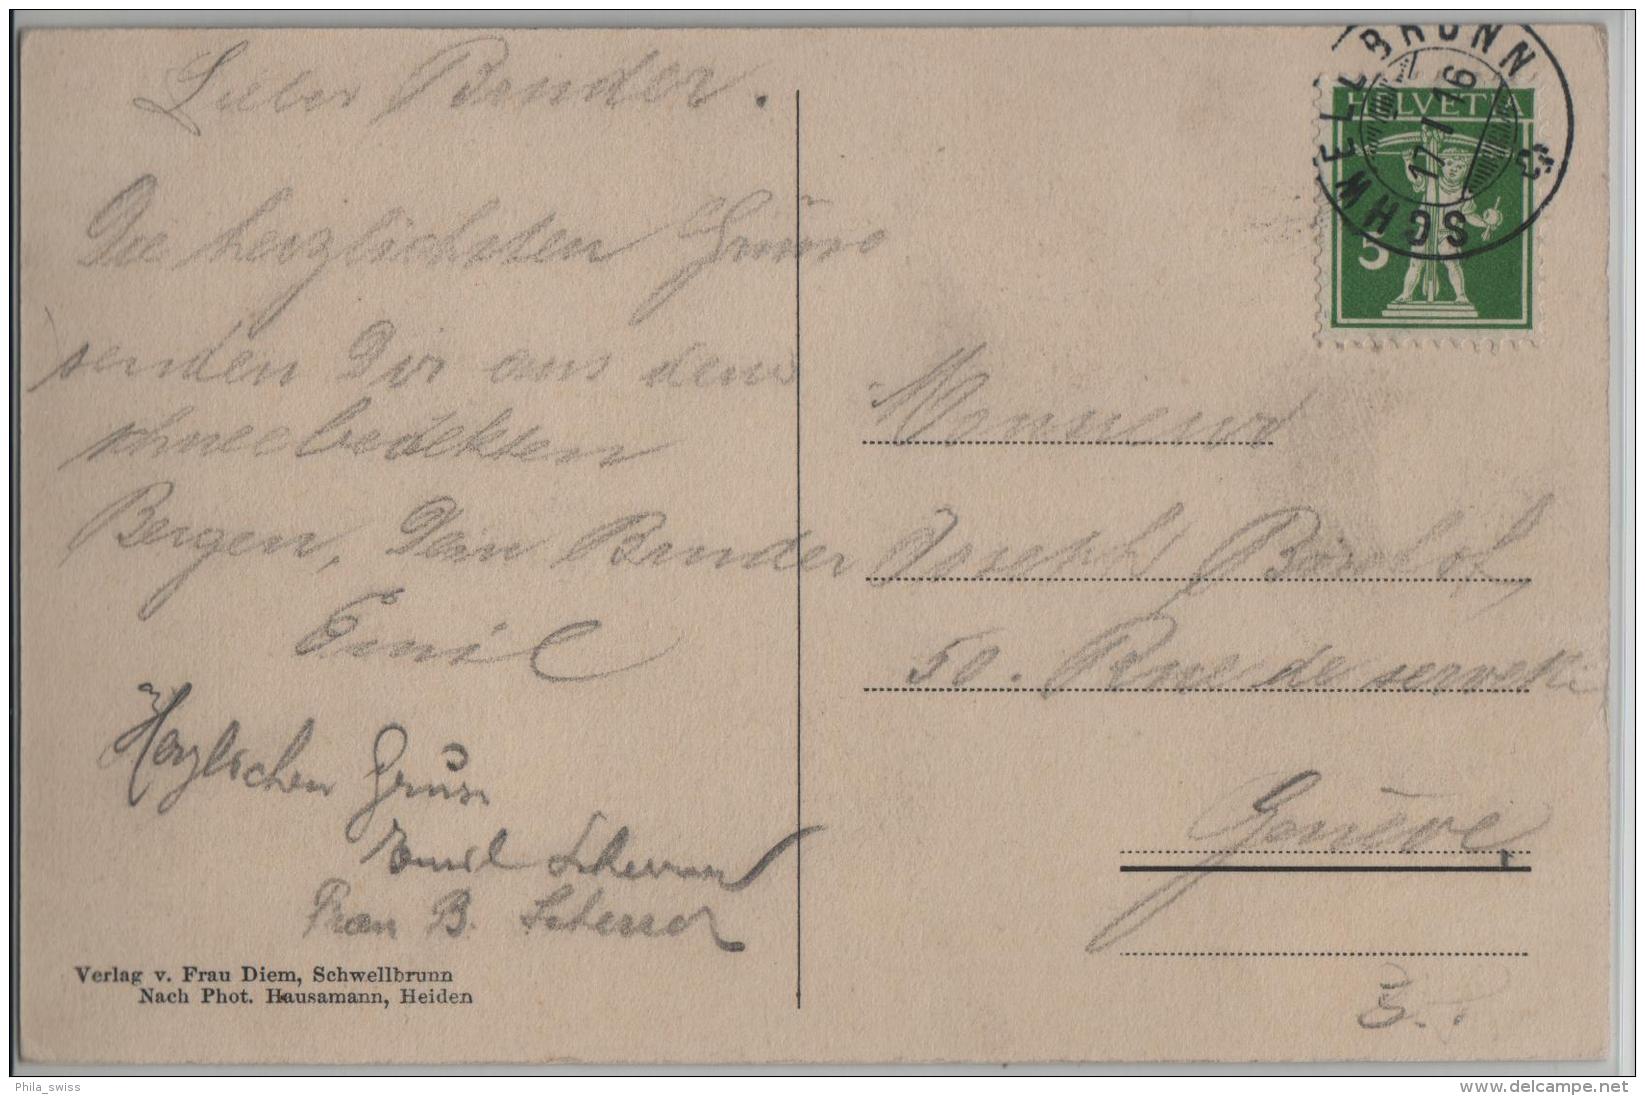 Lieber Bruder.
Die herzlichsten Grüsse
senden Dir aus den
schneebedekten
Bergen, Dein Bruder
Emil
Herzlichen Gruss
Emil Scherrer
Frau B. Scherrer
Verlag v. Frau Diem, Schwellbrunn
Nach Phot. Hausamann, Heiden
SCHWELLBRUNN
17 I 16
HELVETIA
5
Monsieur
Joseph
50. Rue de servette
Genève
Phila_swiss
www.delcampe.net